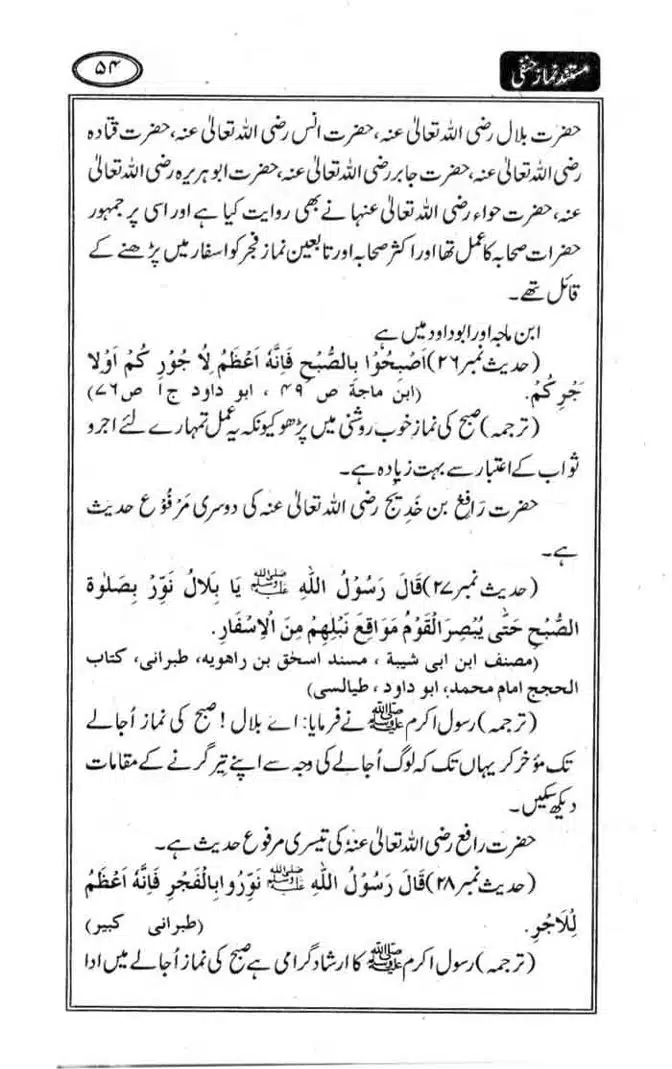 مستند نماز حنفی
۵۴
حضرت بلال رضی اللہ تعالیٰ عنہ، حضرت انس رضی اللہ تعالیٰ عنہ، حضرت قتادہ
رضی اللہ تعالیٰ عنہ، حضرت جابر رضی اللہ تعالیٰ عنہ، حضرت ابو ہریرہ رضی اللہ تعالیٰ
عنہ، حضرت حواء رضی اللہ تعالیٰ عنہا نے بھی روایت کیا ہے اور اسی پر جمہور
حضرات صحابہ کا عمل تھا اور اکثر صحابہ اور تابعین نماز فجر کو اسفار میں پڑھنے کے
قائل تھے۔
ابن ماجہ اور ابوداود میں ہے
(حدیث نمبر ۲۶) اَصْبِحُوْا بِالصُّبْحِ فَاِنَّهٗ اَعْظَمُ لِاُ جُوْرِ كُمْ اَوْلَا
جْرِكُمْ. (ابن ماجة ص ۴۹ ، ابو داود ج ۱ ص ۷۶)
(ترجمہ) صبح کی نماز خوب روشنی میں پڑھو کیونکہ یہ عمل تمہارے لئے اجر و
ثواب کے اعتبار سے بہت زیادہ ہے۔
حضرت رَافِع بن خَدِیج رضی اللہ تعالیٰ عنہ کی دوسری مَرْفُوْع حدیث
ہے۔
(حدیث نمبر ۲۷) قَالَ رَسُوْلُ اللّٰهِ ﷺ يَا بِلَالُ نَوِّرْ بِصَلٰوةِ
الصُّبْحِ حَتّٰى يُبْصِرَ الْقَوْمُ مَوَاقِعَ نَبْلِهِمْ مِنَ الْاِسْفَارِ.
(مصنف ابن ابی شیبة ، مسند اسحٰق بن راهویه، طبرانی، کتاب
الحجج امام محمد، ابو داود ، طیالسی)
(ترجمہ) رسول اکرم ﷺ نے فرمایا: اے بلال! صبح کی نماز اُجالے
تک مؤخر کر یہاں تک کہ لوگ اُجالے کی وجہ سے اپنے تیر گرنے کے مقامات
دیکھ سکیں۔
حضرت رافع رضی اللہ تعالیٰ عنہٗ کی تیسری مرفوع حدیث ہے۔
(حدیث نمبر ۲۸) قَالَ رَسُوْلُ اللّٰهِ ﷺ نَوِّرُوا بِالْفَجْرِ فَاِنَّهٗ اَعْظَمُ
لِلْاَجْرِ. (طبرانی کبیر)
(ترجمہ) رسول اکرم ﷺ کا ارشاد گرامی ہے صبح کی نماز اُجالے میں ادا